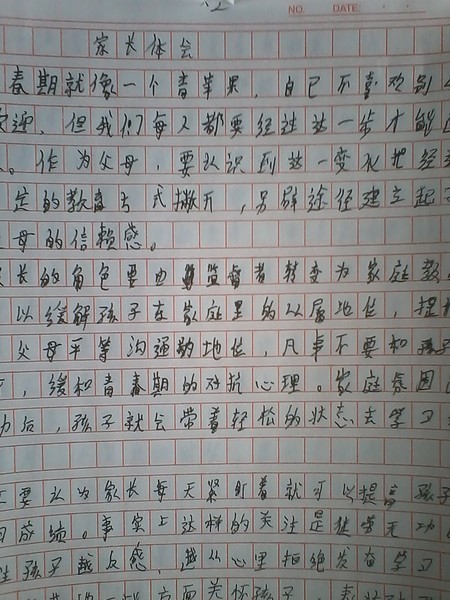 NO. DATE:
家长体会
春期就像一个青苹果,自己不喜欢别
迎,但我们每人都要经过这一步才能
。作为父母,要认识到这一变化把经
定的教育方式撇开,另辟途径建立起
母的信赖感。
长的角色要由监督者转变为家庭教
以缓解孩子在家庭里的从属地位,提
父母平等沟通的地位,凡事不要和孩子
,缓和青春期的对抗心理。家庭氛围
功后,孩子就会带着轻松的状态去学习
要认为家长每天紧盯着就可以提高孩子
成绩。事实上这样的关注是徒劳无功
孩子越反感,越从心里拒绝发奋学习
方面关怀孩子,